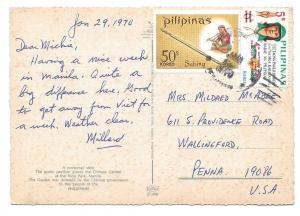 Jan 29, 1970
Dear Mickie,
Having a nice week
in Manila. Quite a
big difference here. Good
to get away from Viet for
a week. Weather clear.
Millard
A memorial view
The garden pavilion graces the Chinese Garden
at the Rizal Park, Manila.
The Garden was donated by the Chinese government
to the people of the
PHILIPPINES
pilipinas
50s
KOREO
Subing
pilipinas
5s
MRS. MILDRED
611 S. PROVIDENCE ROAD
WALLINGFORD,
PENNA. 19086
U.S.A.